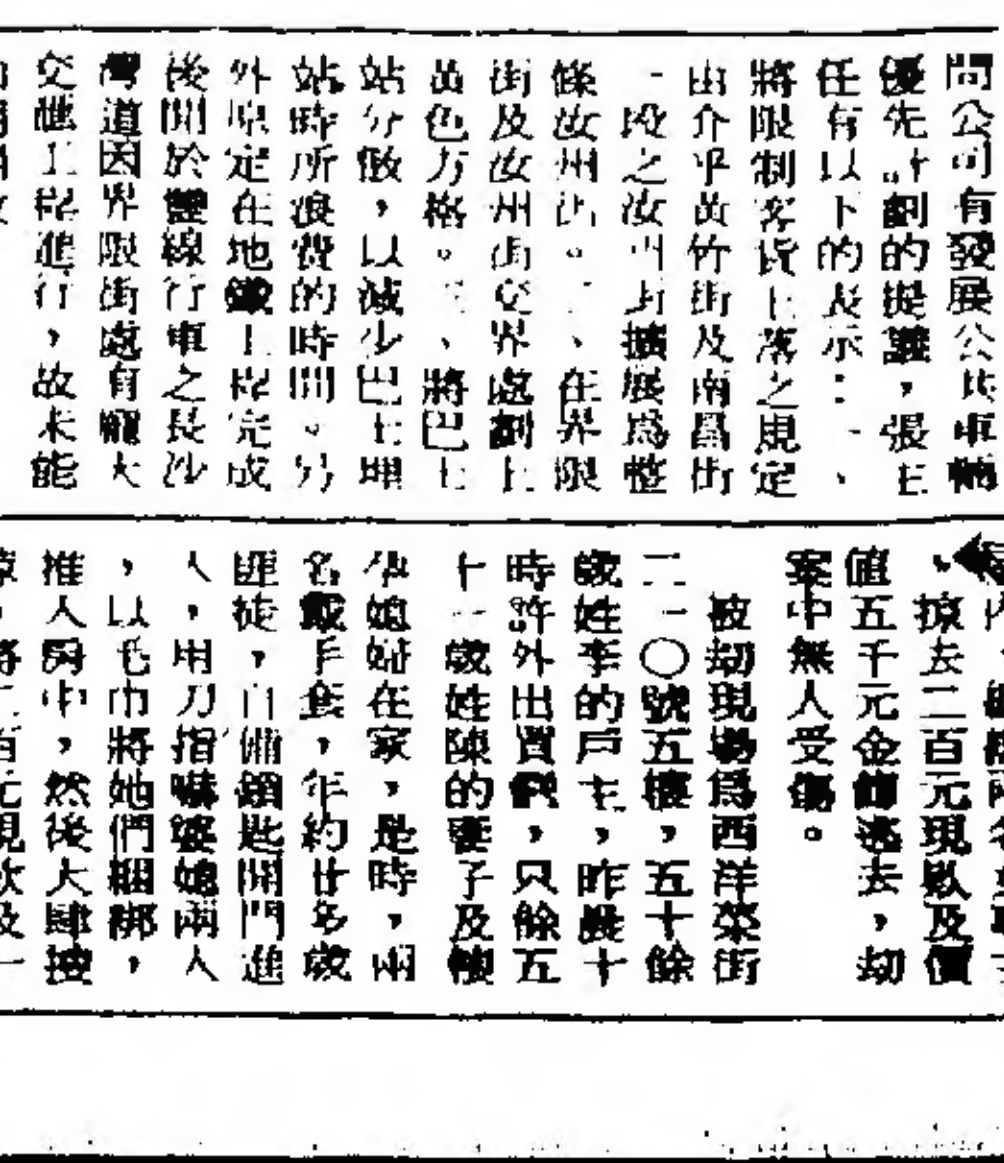 問公司有發展公共車輛
優先計劃的提議，張主
任有以下的表示：一、
將限制客貨上落之規定
由介乎黃竹街及南昌街
一段之汝州街擴展為整
條汝州街。二、在界限
街及汝州街交界處劃上
黃色方格。三、將巴士
站分散，以減少巴士埋
站時所浪費的時間。另
外原定在地鐵工程完成
後開於雙線行車之長沙
灣道因界限街處有龐大
交匯工程進行，故未能
，掠去二百元現款及價
值五千元金飾逃去，劫
案中無人受傷。
被劫現場為西洋菜街
二一〇號五樓，五十餘
歲姓李的戶主，昨晨十
時許外出買餸，只餘五
十一歲姓陳的妻子及
媳婦在家，是時，兩
名戴手套，年約廿多歲
匪徒，自備鎖匙開門進
人，用刀指嚇婆媳兩人
，以毛巾將她們綑綁，
推人房中，然後大肆搜